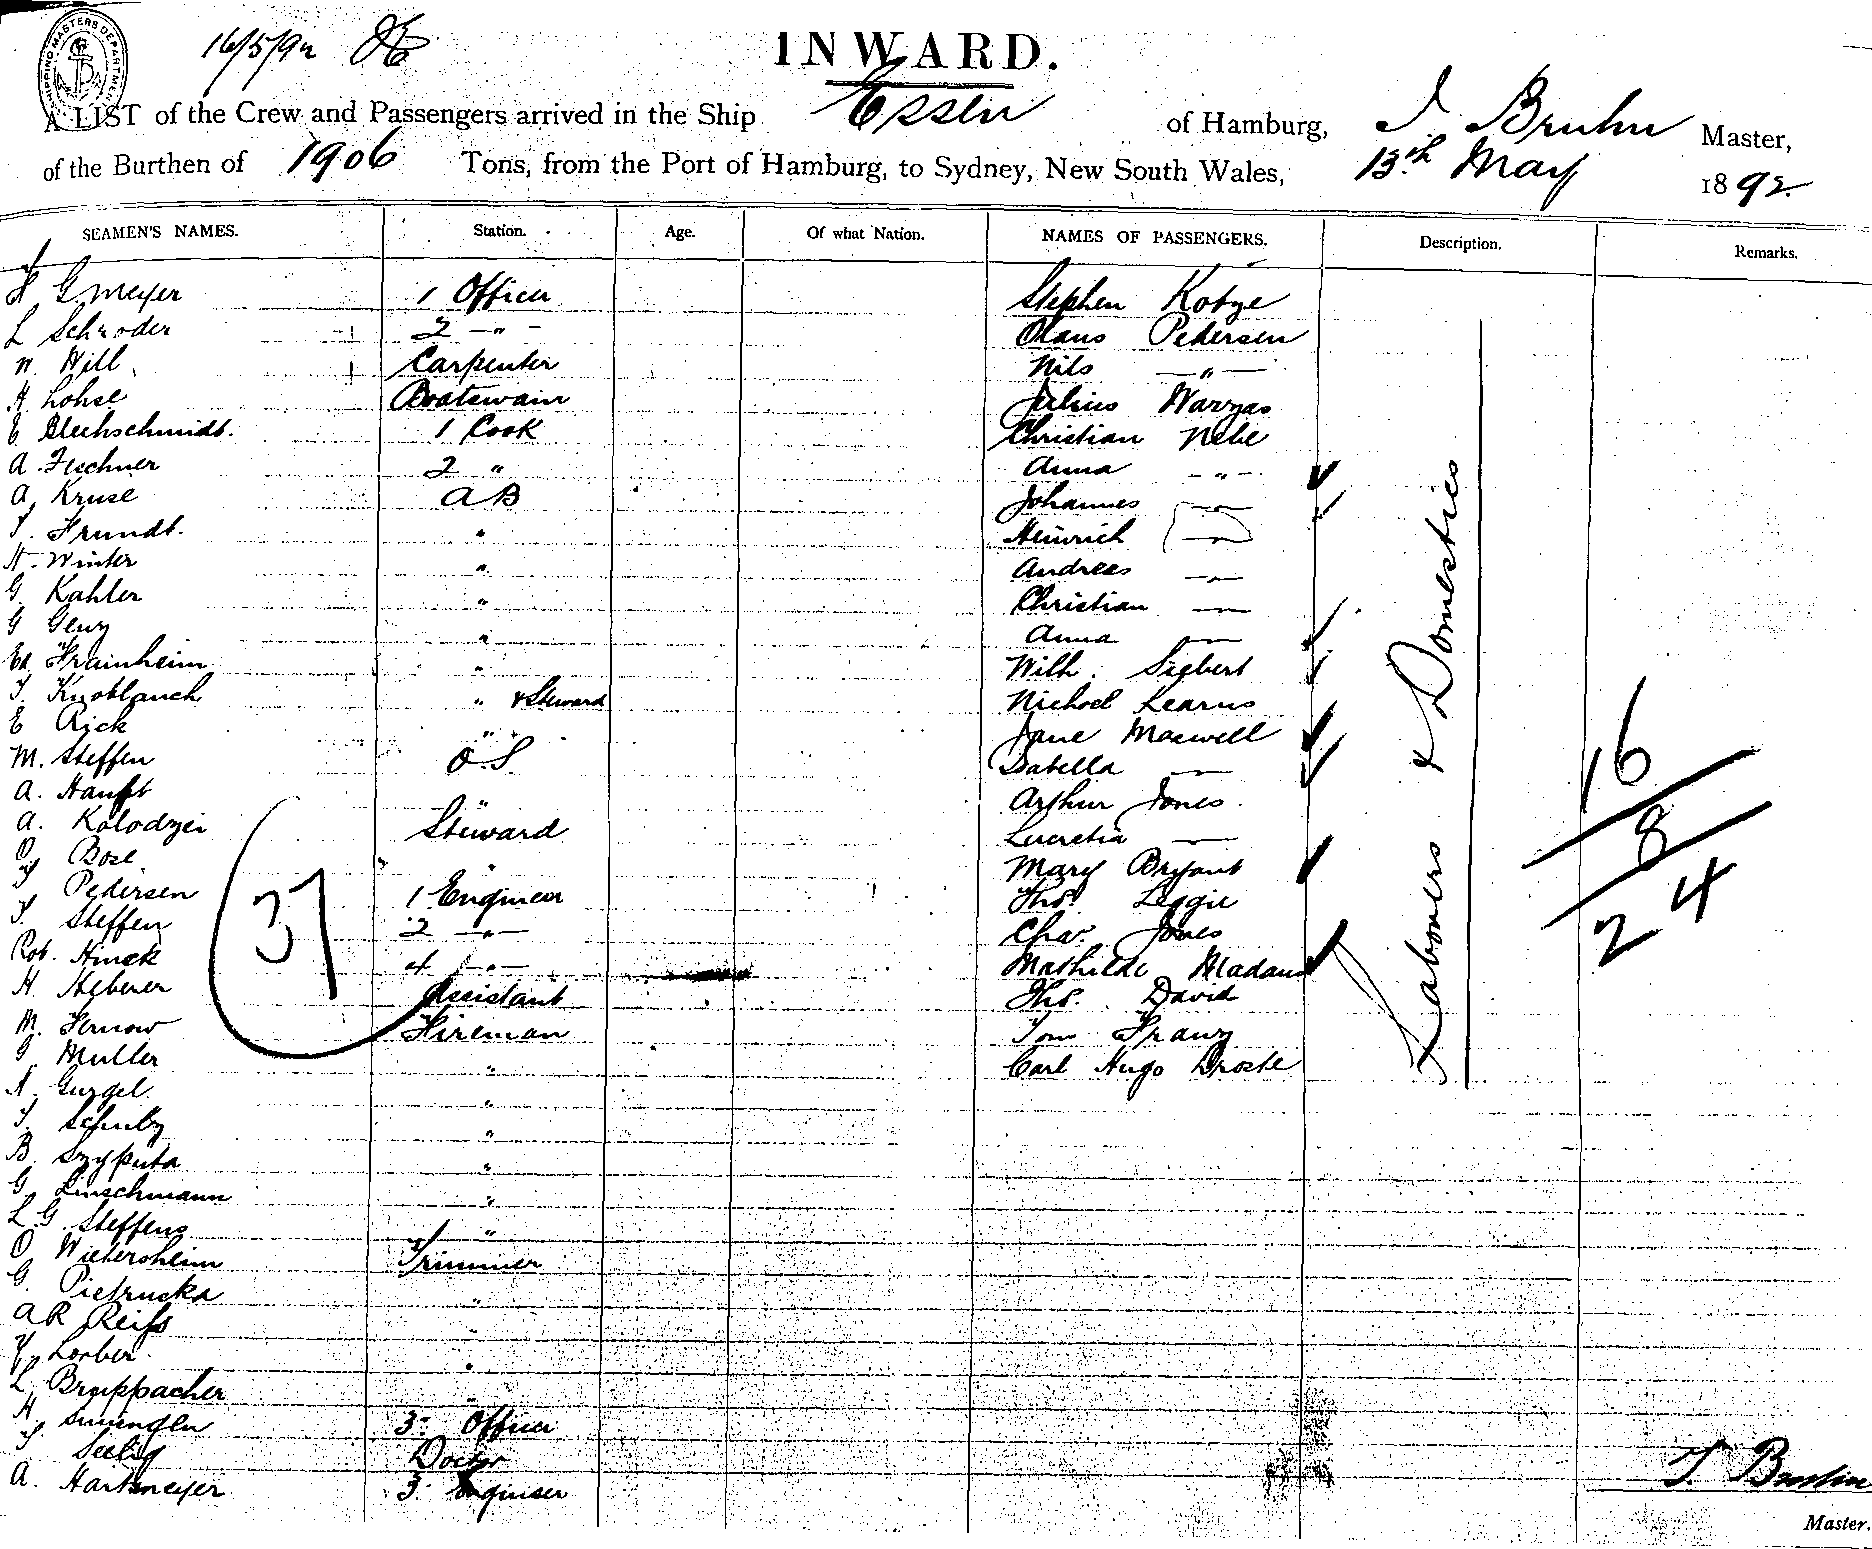 SHIPPING MASTERS DEPARTMENT
16/5/92
INWARD.
A LIST of the Crew and Passengers arrived in the Ship Essen of Hamburg, J Bruhn Master,
of the Burthen of 1906 Tons, from the Port of Hamburg, to Sydney, New South Wales, 13th May 1892
SEAMEN'S NAMES. Station. Age. Of what Nation. NAMES OF PASSENGERS. Description. Remarks.
H G Meyer 1 Officer Stephen Kotze
L Schroder 2 -"- Olaus Pedersen
W. Will Carpenter Nils -"-
H Lohse Boatswain Julius Warzas
E Blechschmidt. 1 Cook Christian Nebe
A. Fechner 2 " Anna -"-
A, Kruse AB Johannes -"-
F. Frundt. " Heinrich -"-
H. Winter " Andreas -"-
G Kahler " Christian -"-
G Geuz " Anna -"-
Ed. Frainheim " Wilh. Siebert
F Knoblauch " & Steward Michael Kearns
E Rick " Jane Maxwell
M. Steffen O.S. Isabella -"-
A. Hanft " Arthur Jones.
A. Kolodzei Steward Lucretia -"-
O Bose " Mary Bryant
F Pedersen 1 Engineer Thos. Leggie
F. Steffen 2 -"- Chas. Jones
Rob. Hinck 4 -"- Mathilde Madaus
H. Heberer Assistant Thos. David
M. Fernow Fireman Tom Franz
G Muller " Carl Hugo Droste
Labourers & Domestics
16
8
24
37
N. Gurgel "
F. Schulz "
B. Szyputa "
G Linschmann "
L G. Steffens "
O Wietersheim Trimmer
G. Pietruska "
A R Reifs "
Lorber "
L, Bruppacher "
H. 3. Officer
F Seelig Doctor
A. Hartmeyer 3. Engineer
J. Bruhn
Master.